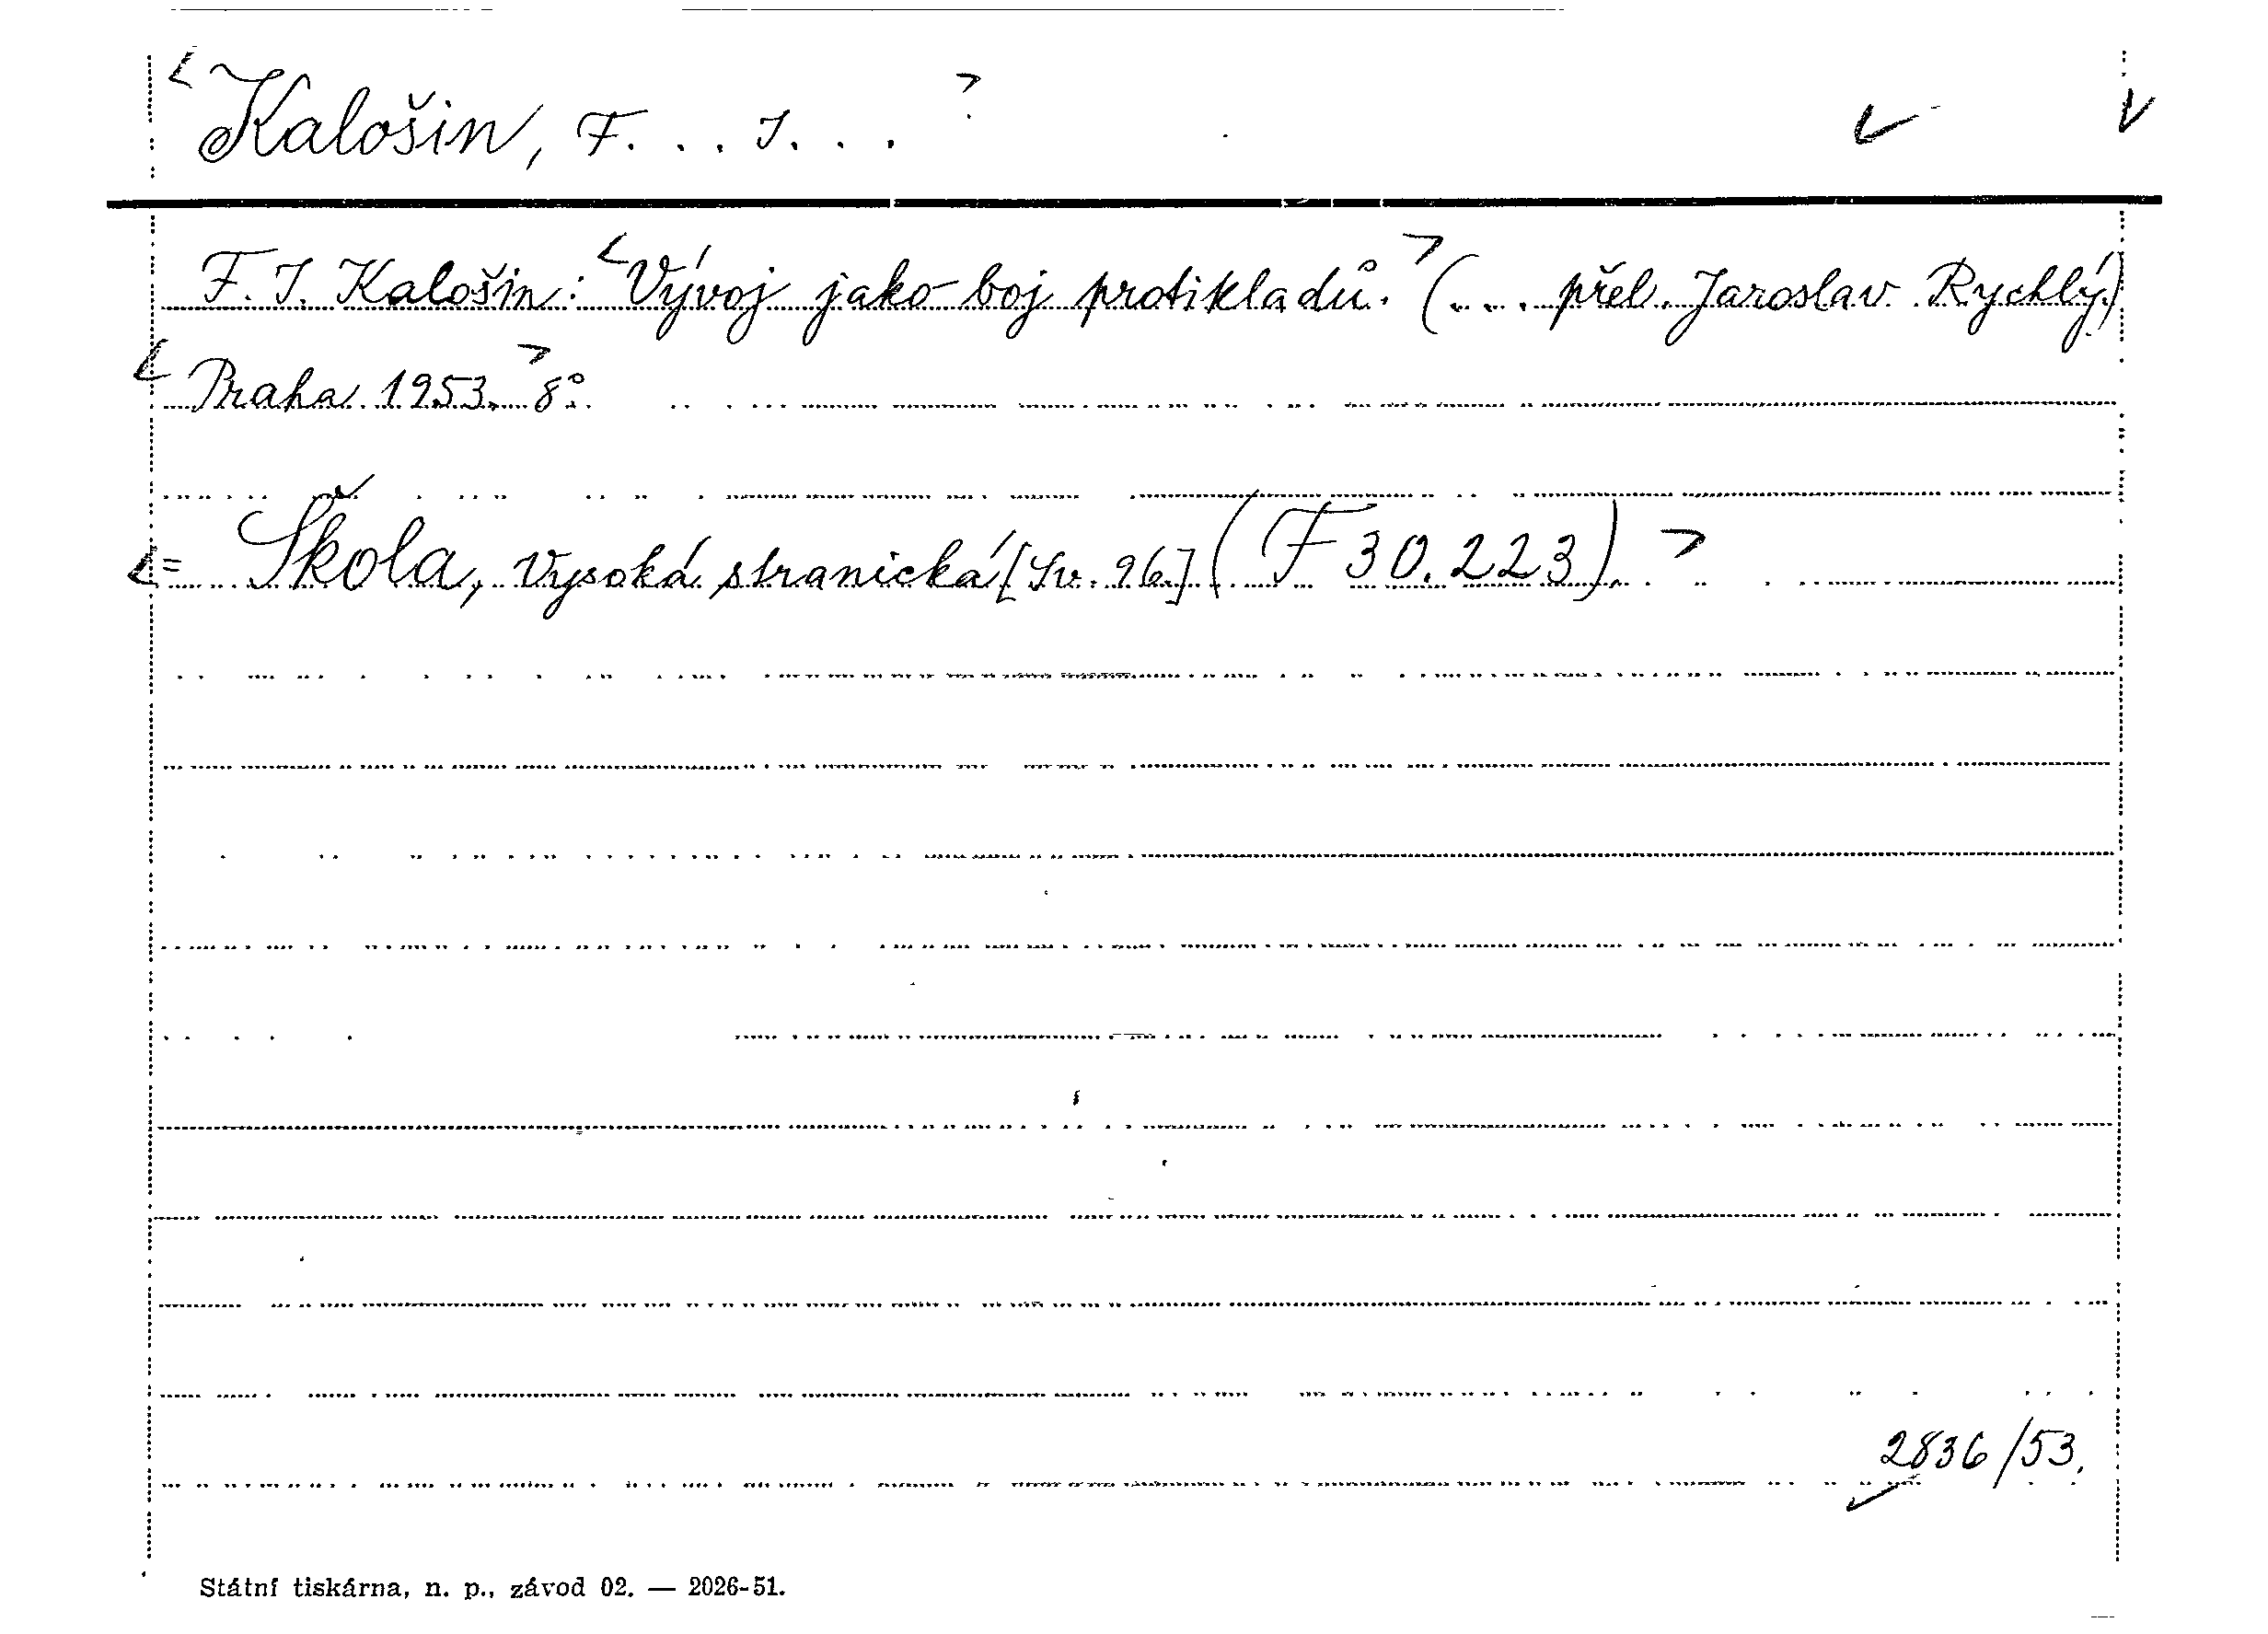 <Kalošin, F. . . I. . . .>
F. I. Kalošin: <Vývoj jako boj protikladů.> (. . . přel. Jaroslav Rychlý)
<Praha 1953.> 8°.
<= Škola, Vysoká stranická [Sv. 96.] (F 30.223).>
2836/53.
Státní tiskárna, n. p., závod 02. — 2026-51.